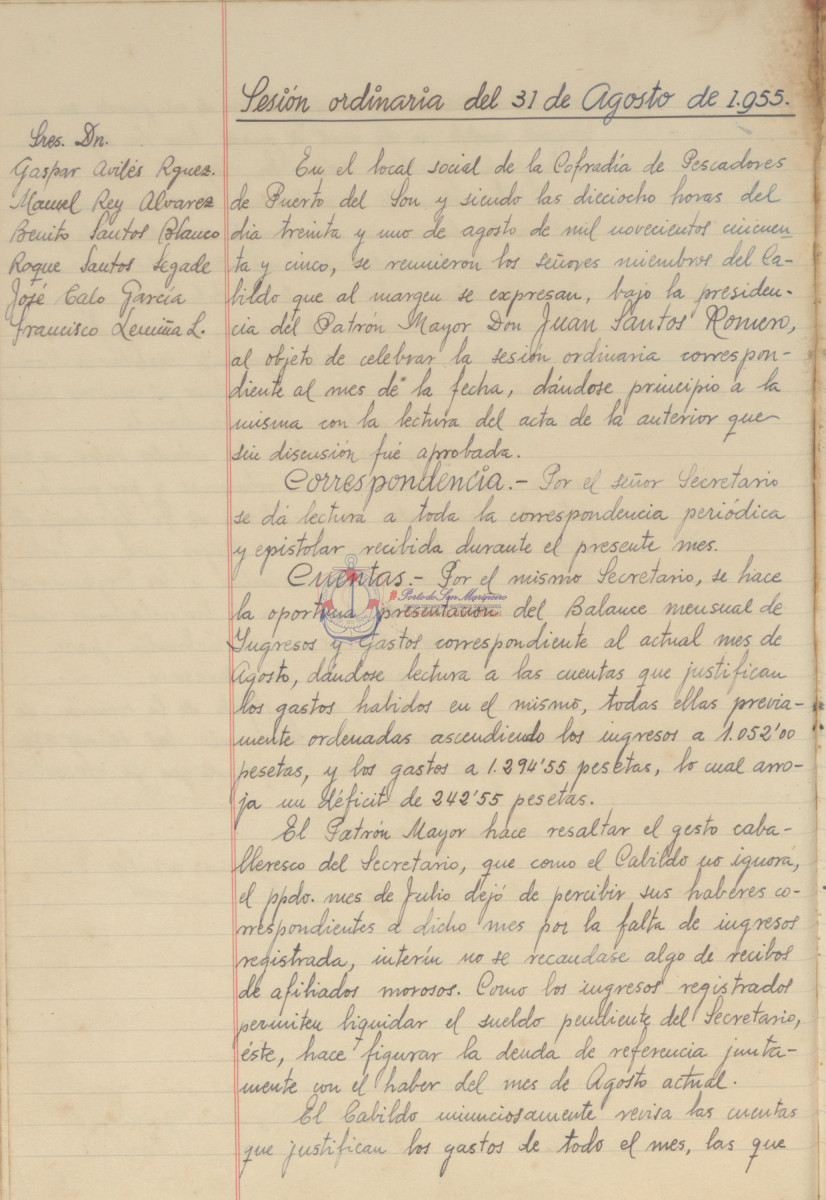 Sesión ordinaria del 31 de Agosto de 1.955.
Sres. Dn.
Gaspar Avilés Rguez.
Manuel Rey Alvarez
Benito Santos Blanco
Roque Santos Segade
José Calo García
Francisco Lemiña L.
En el local social de la Cofradía de Pescadores
de Puerto del Son y siendo las dieciocho horas del
dia treinta y uno de agosto de mil novecientos cincuen-
ta y cinco, se reunieron los señores miembros del Ca-
bildo que al margen se expresan, bajo la presiden-
cia del Patrón Mayor Don Juan Santos Romero,
al objeto de celebrar la sesión ordinaria correspon-
diente al mes de la fecha, dándose principio a la
misma con la lectura del acta de la anterior que
sin discusión fué aprobada.
Correspondencia.- Por el señor Secretario
se dá lectura a toda la correspondencia periódica
y epistolar recibida durante el presente mes.
Cuentas.- Por el mismo Secretario, se hace
la oportuna presentación del Balance mensual de
Ingresos y Gastos correspondiente al actual mes de
Agosto, dándose lectura a las cuentas que justifican
los gastos habidos en el mismo, todas ellas previa-
mente ordenadas ascendiendo los ingresos a 1.052'00
pesetas, y los gastos a 1.294'55 pesetas, lo cual arro-
ja un déficit de 242'55 pesetas.
El Patrón Mayor hace resaltar el gesto caba-
lleresco del Secretario, que como el Cabildo no ignora,
el ppdo. mes de Julio dejó de percibir sus haberes co-
rrespondientes a dicho mes por la falta de ingresos
registrada, interín no se recaudase algo de recibos
de afiliados morosos. Como los ingresos registrados
permiten liquidar el sueldo pendiente del Secretario,
éste, hace figurar la deuda de referencia junta-
mente con el haber del mes de Agosto actual.
El Cabildo minuciosamente revisa las cuentas
que justifican los gastos de todo el mes, las que
#Porto do Son Mariñeiro